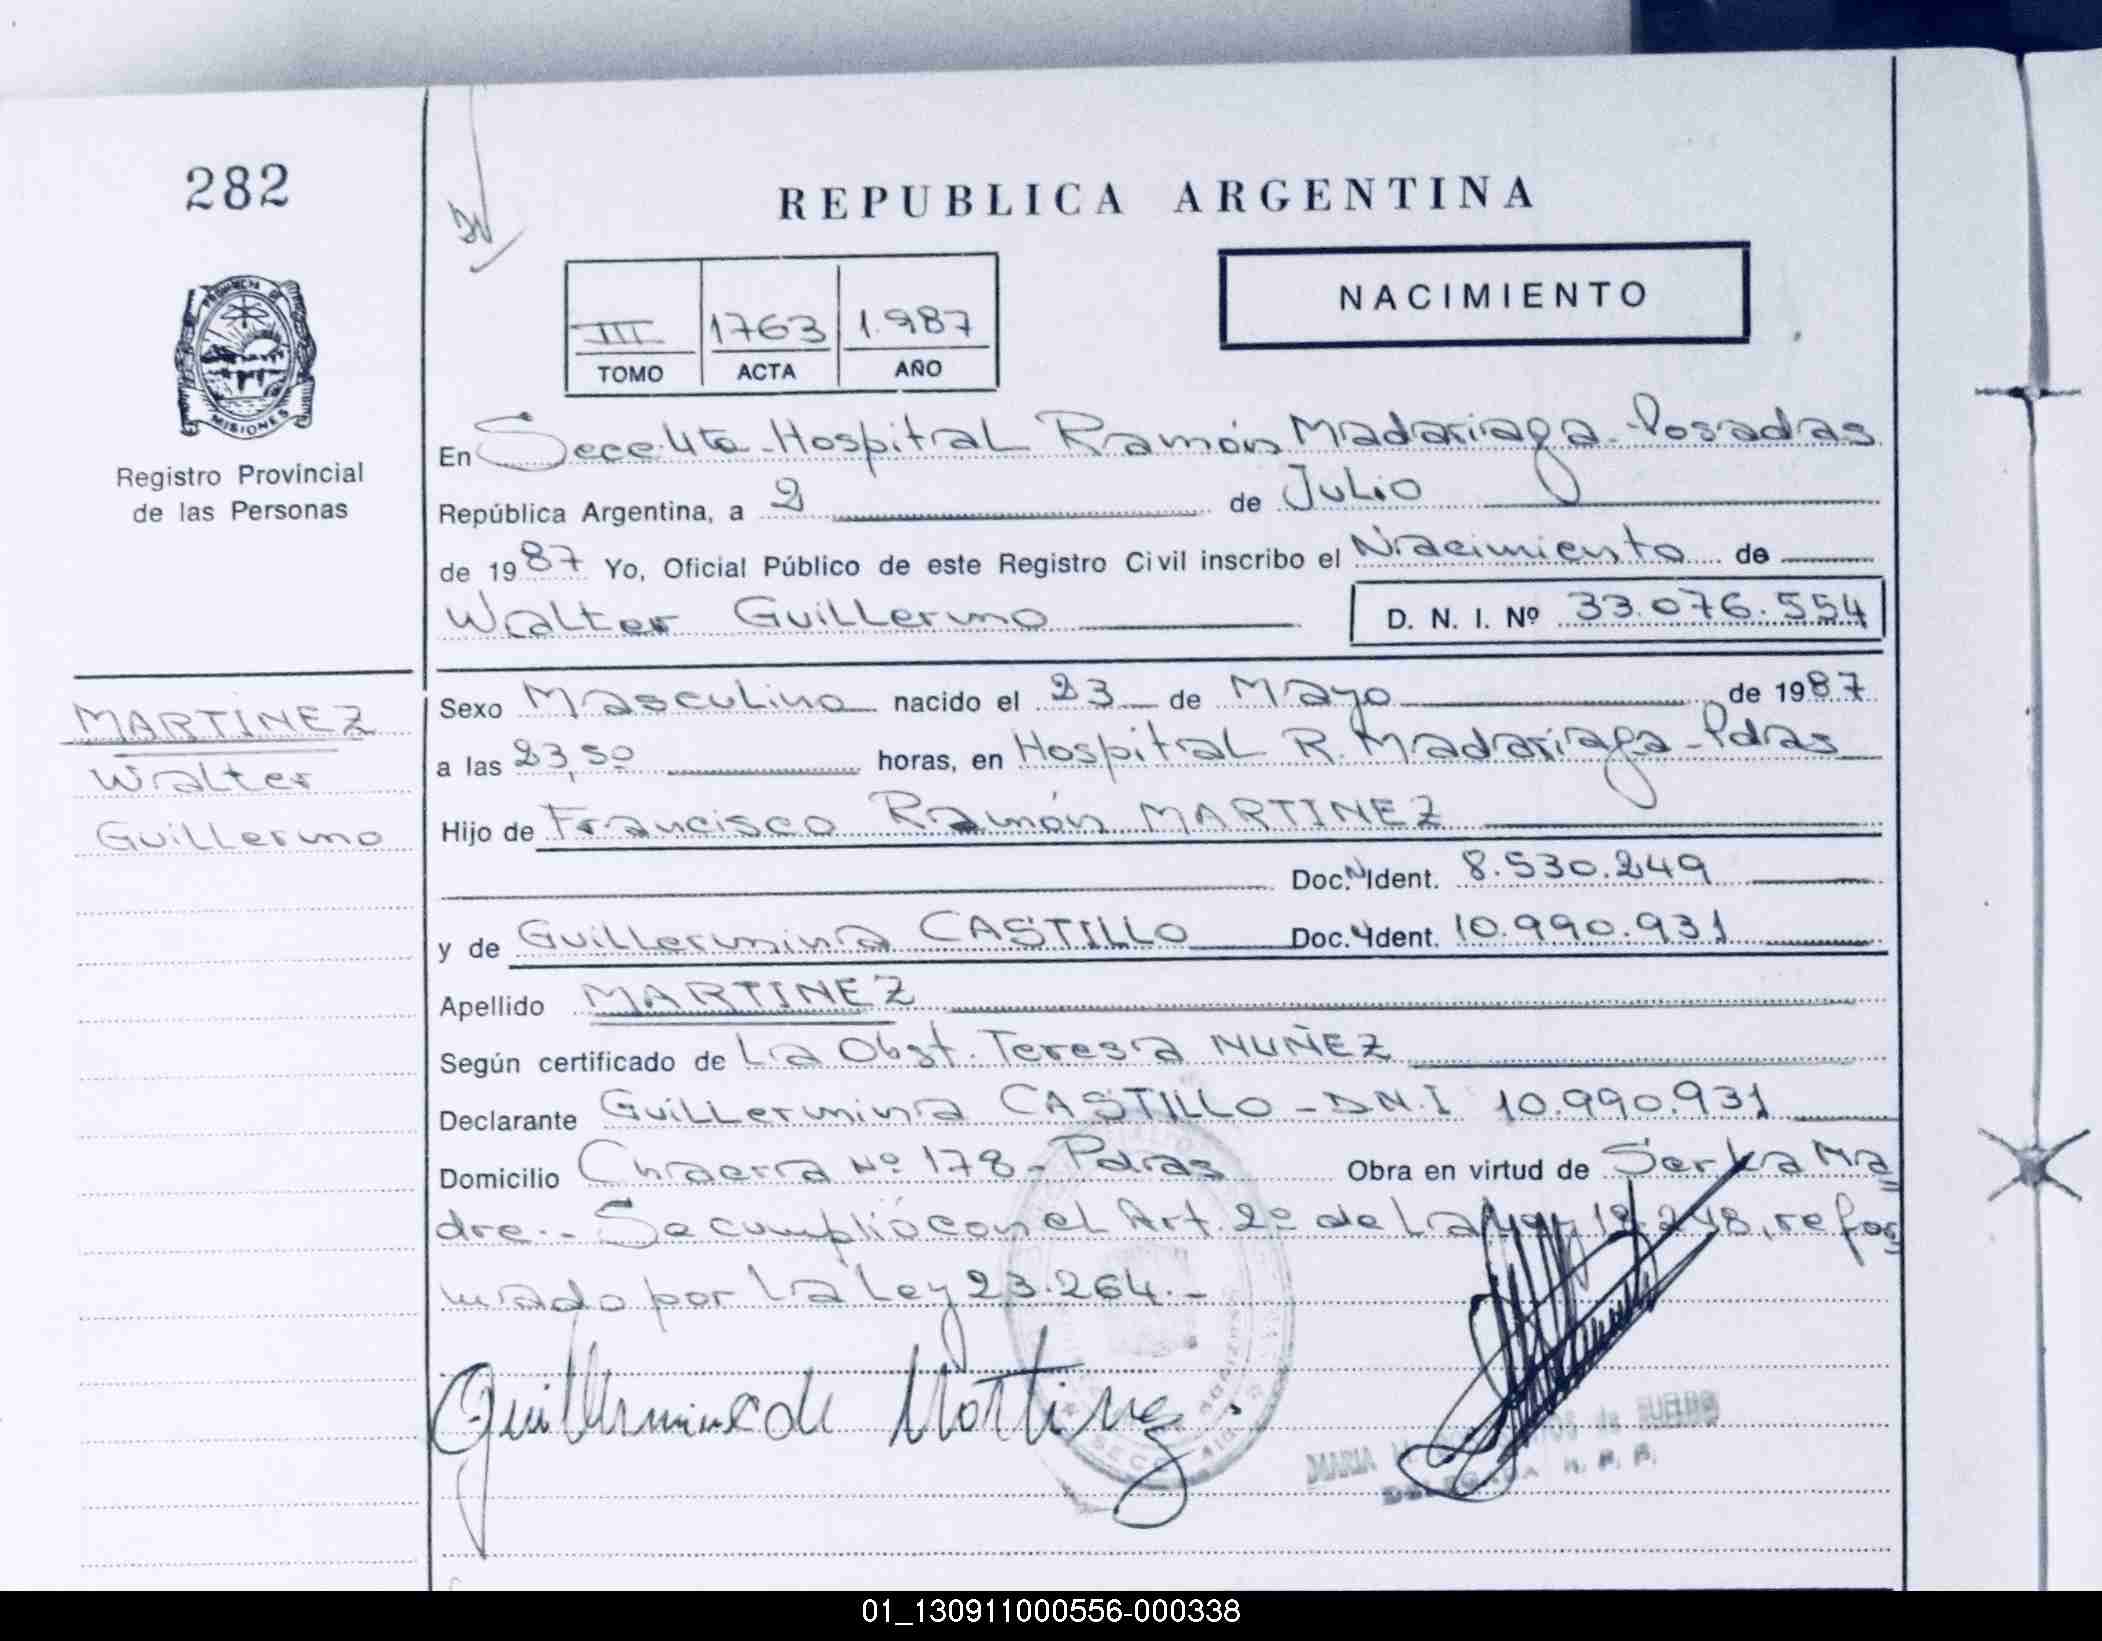 282
REPUBLICA ARGENTINA
III 1763 1.987
TOMO ACTA AÑO
NACIMIENTO
PROVINCIA DE
MISIONES
Registro Provincial
de las Personas
En Secc. 4ta - Hospital Ramón Madariaga - Posadas
República Argentina, a 2 de Julio
de 1987 Yo, Oficial Público de este Registro Civil inscribo el Nacimiento de
Walter Guillermo D. N. I. Nº 33.076.554
MARTINEZ
Walter
Guillermo
Sexo Masculino nacido el 23 de Mayo de 1987
a las 23,50 horas, en Hospital R. Madariaga - Pdas
Hijo de Francisco Ramón MARTINEZ
Doc. Ident. 8.530.249
y de Guillermina CASTILLO Doc. Ident. 10.990.931
Apellido MARTINEZ
Según certificado de La Obst. Teresa NUÑEZ
Declarante Guillermina CASTILLO - DN.I 10.990.931
Domicilio Chacra Nº 178 - Pdas Obra en virtud de Ser La Ma
dre.- Se cumplió con el Art. 2º de La Ley 18.248, refor
mado por La Ley 23.264.-
Guillermina de Martinez
MARIA de
01_130911000556-000338